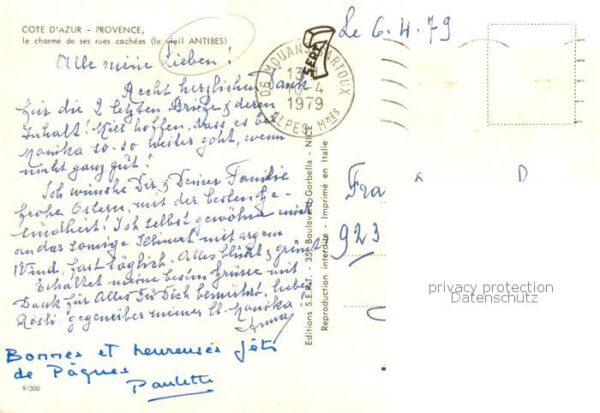 COTE D'AZUR - PROVENCE,
le charme de ses rues cachées (le vieil ANTIBES)
Le 6.4.79
Alle meine Lieben!
Recht herzlichen Dank
für die 2 letzten Briefe & deren
Inhalt! Wir hoffen, dass es bei
Monika so-so weiter geht, wenn
nicht ganz gut!
Ich wünsche Dir & Deiner Familie
frohe Ostern, mit der besten Ge-
sundheit! Ich selbst gewöhne mich
an das sonnige Klima mit argem
Wind, fast täglich. Alles blüht & grünt
Erhaltet meine besten Grüsse mit
Dank für Alles Dich bemühst, liebes
Rösli gegenüber meiner Monika
Bonnes et heureuses fêtes
de Pâques
Paulette
9/300
06 MOUANS SARTOUX
13
10-4
1979
ALPES Mmes
Editions S.E.P.T. - 359 Boulevard Gorbella - NICE
Reproduction interdite - Imprimé en Italie
SEPT
Fra
923
privacy protection
Datenschutz